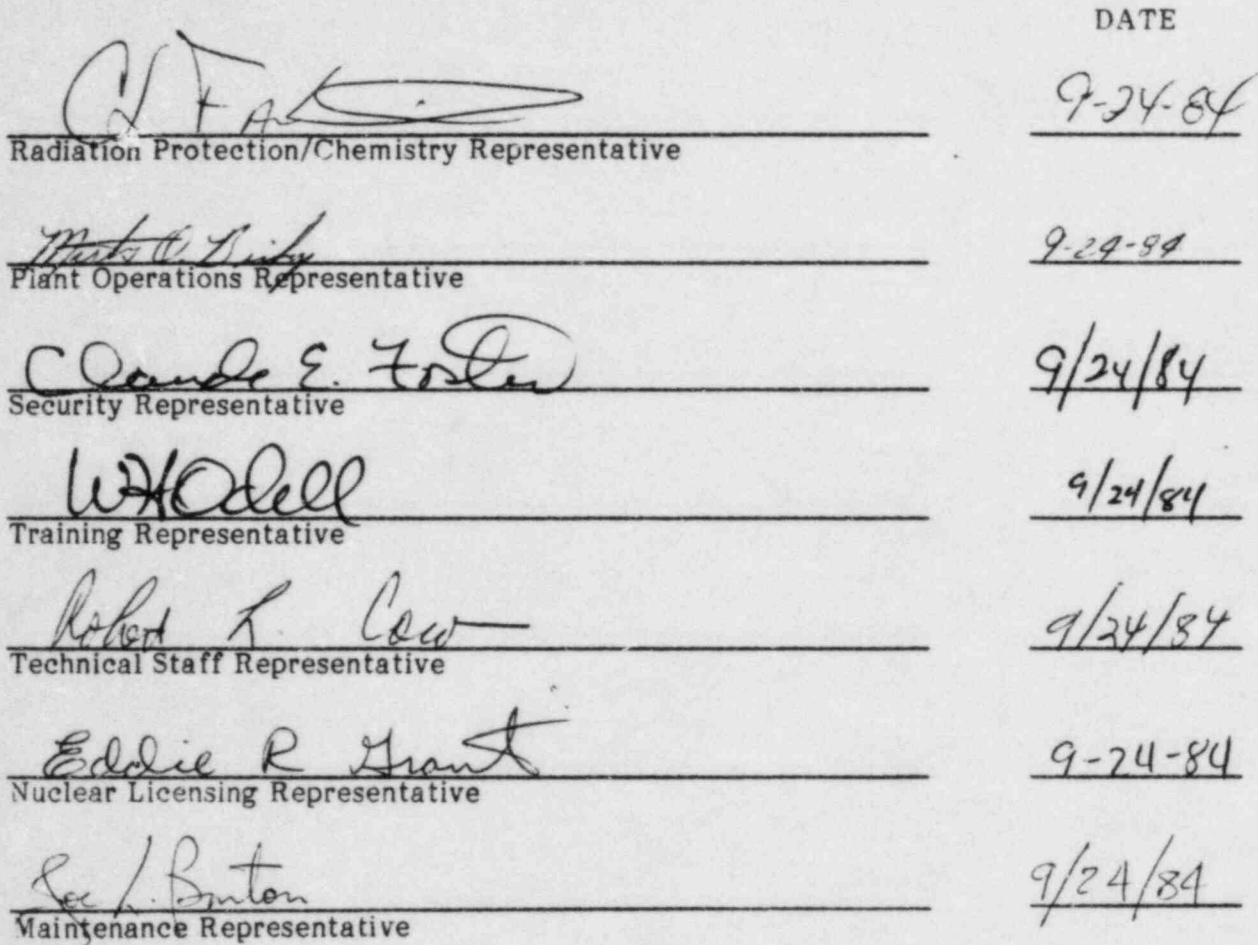 DATE
9-24-84
Radiation Protection/Chemistry Representative
9-24-84
Plant Operations Representative
Claude E. Foster 9/24/84
Security Representative
WHOdell 9/24/84
Training Representative
Robert L. 9/24/84
Technical Staff Representative
Eddie R Grant 9-24-84
Nuclear Licensing Representative
Joe L. 9/24/84
Maintenance Representative